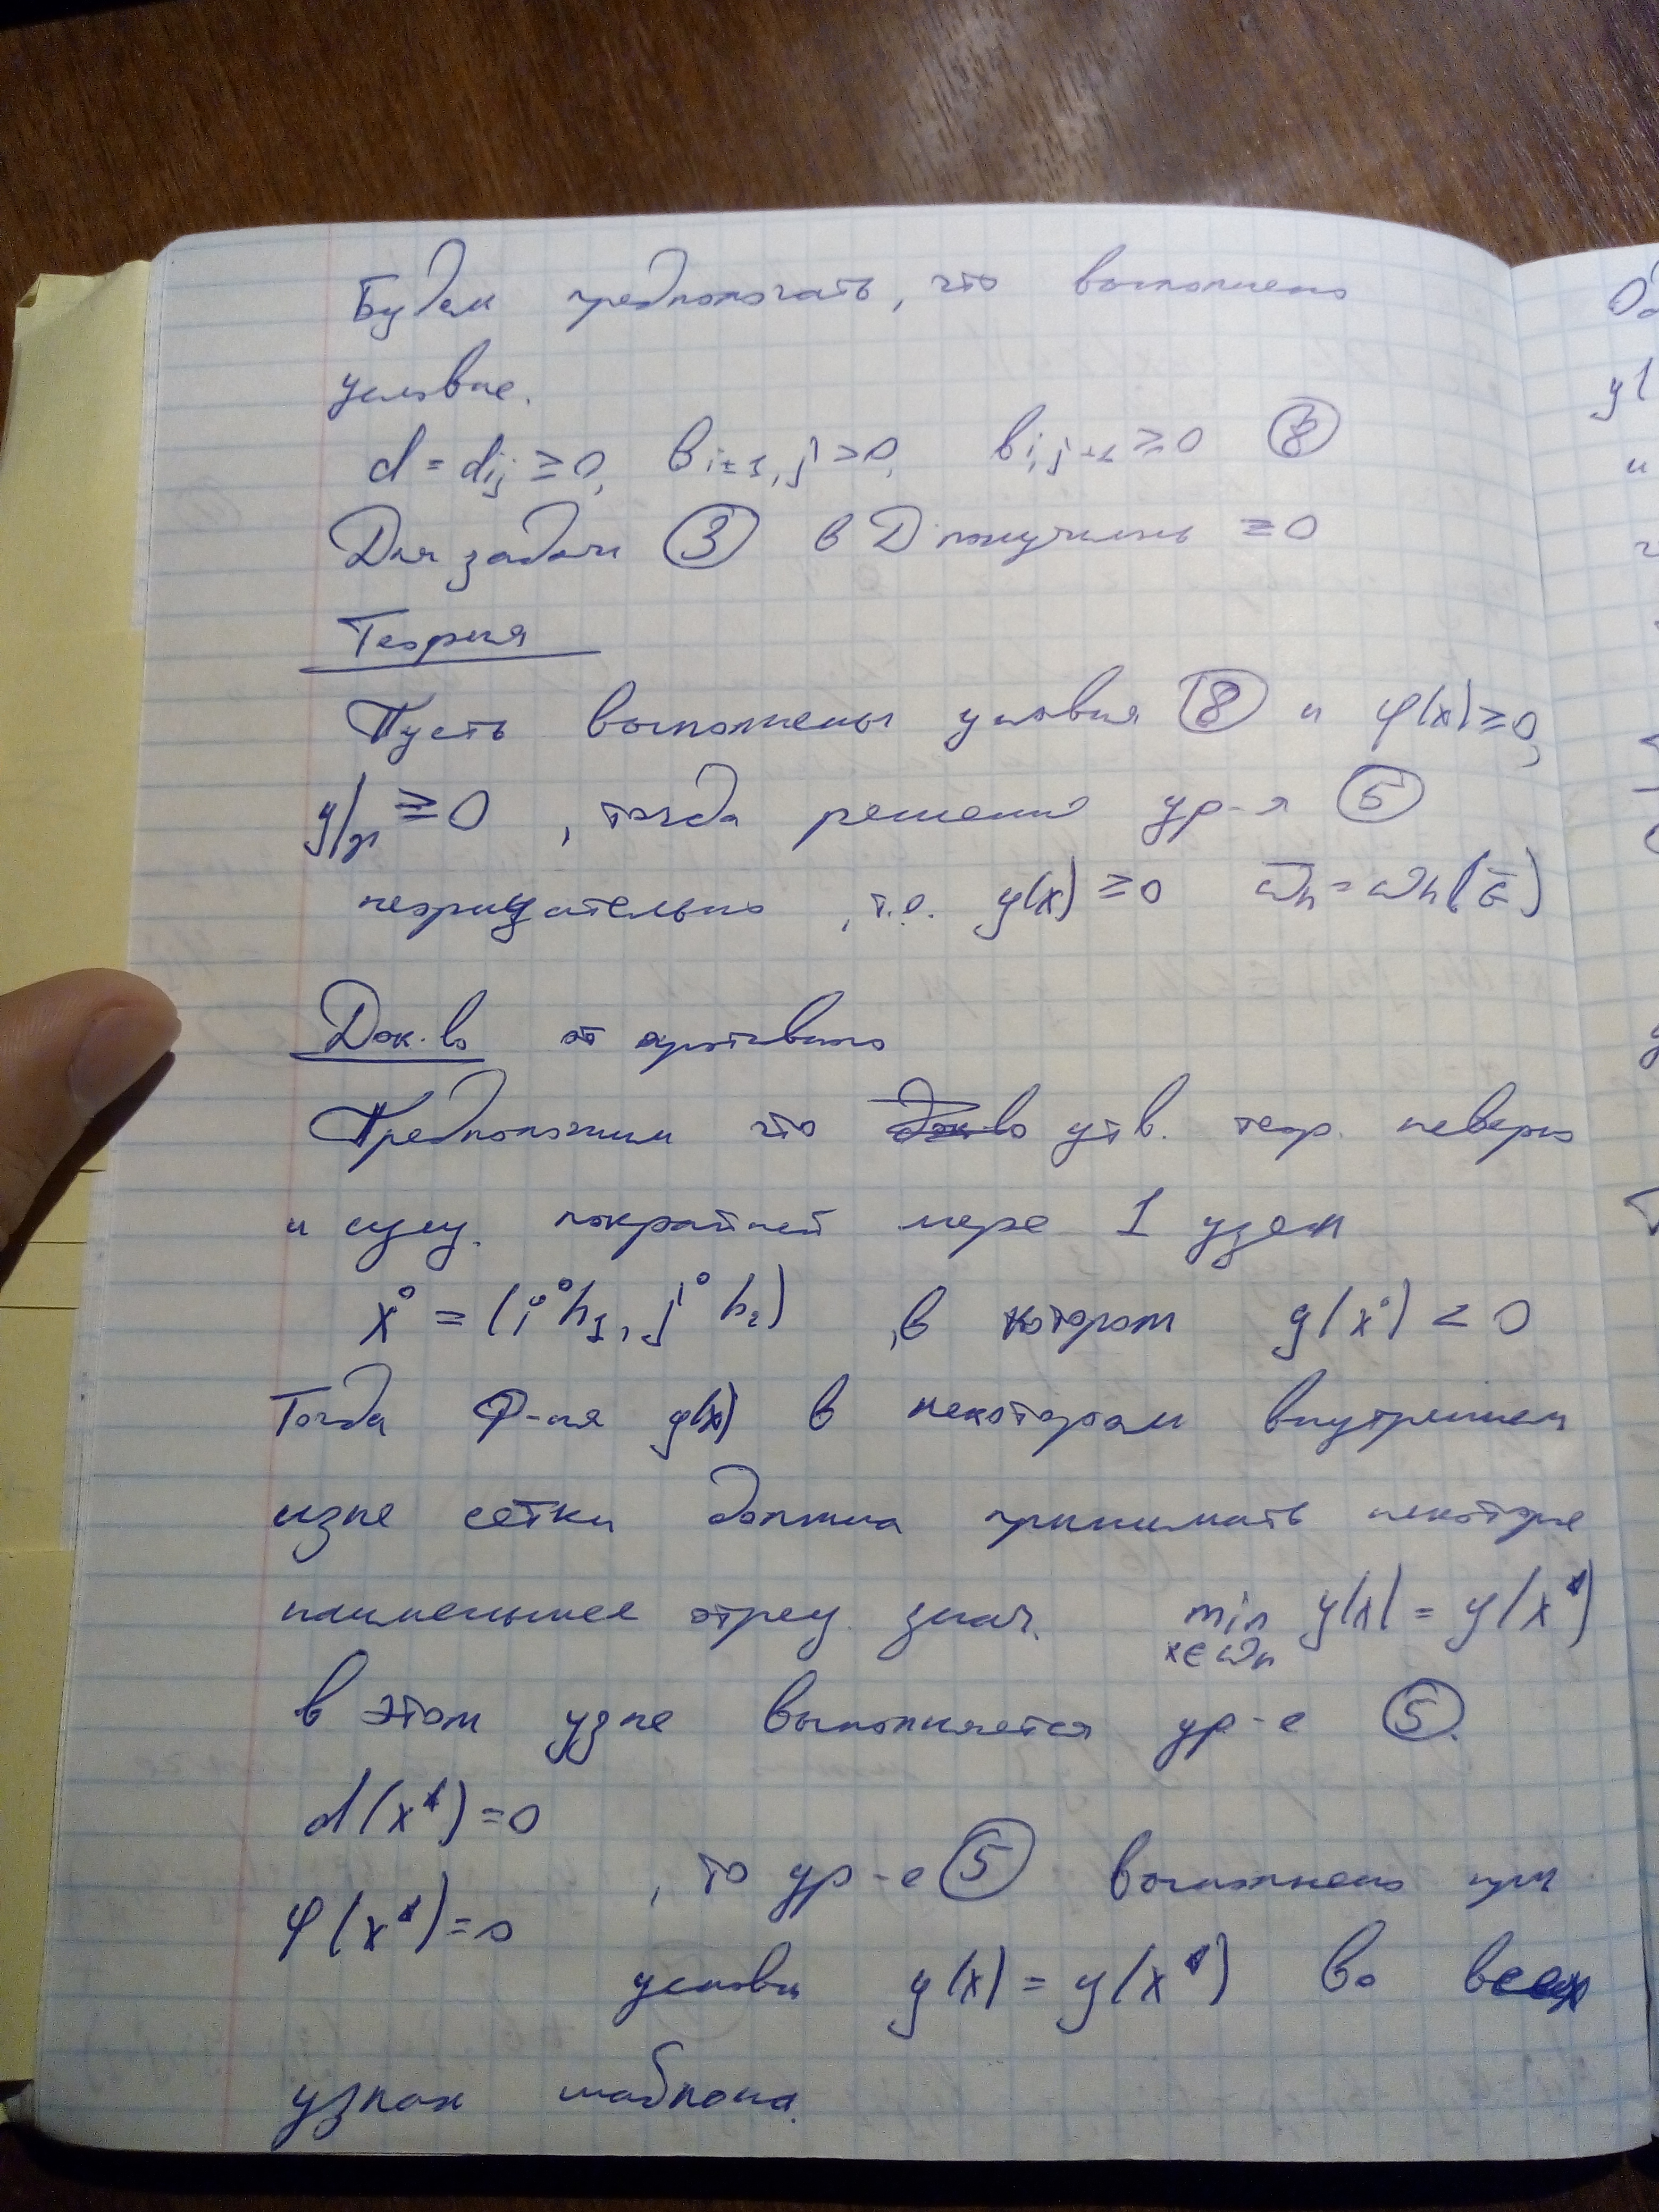 Будем предполагать, что выполнено
условие.
d = dij ≥ 0, Bi±1, j > 0, Bi, j±1 ≥ 0 (8)
Для задачи (3) в D получилось ≥ 0
Теория
Пусть выполнены условия (8) и φ(x) ≥ 0,
y|γ ≥ 0, тогда решение ур-я (5)
неорицательно, т.е. y(x) ≥ 0 ω̄h = ωh(G̅)
Док-во от противного
Предположим что утв. теор. неверно
и сущ. покрайней мере 1 узел
x⁰ = (i⁰h1, j⁰h2), в котором y(x⁰) < 0
Тогда Ф-ия y(x) в некотором внутреннем
узле сетки должна принимать некоторое
наименьшее отриц. знач. min y(x) = y(x*)
x∈ωh
в этом узле выполняется ур-е (5).
d(x*) = 0
, то ур-е (5) выполнено при
φ(x*) = 0
условии y(x) = y(x*) во всех
узлах шаблона.